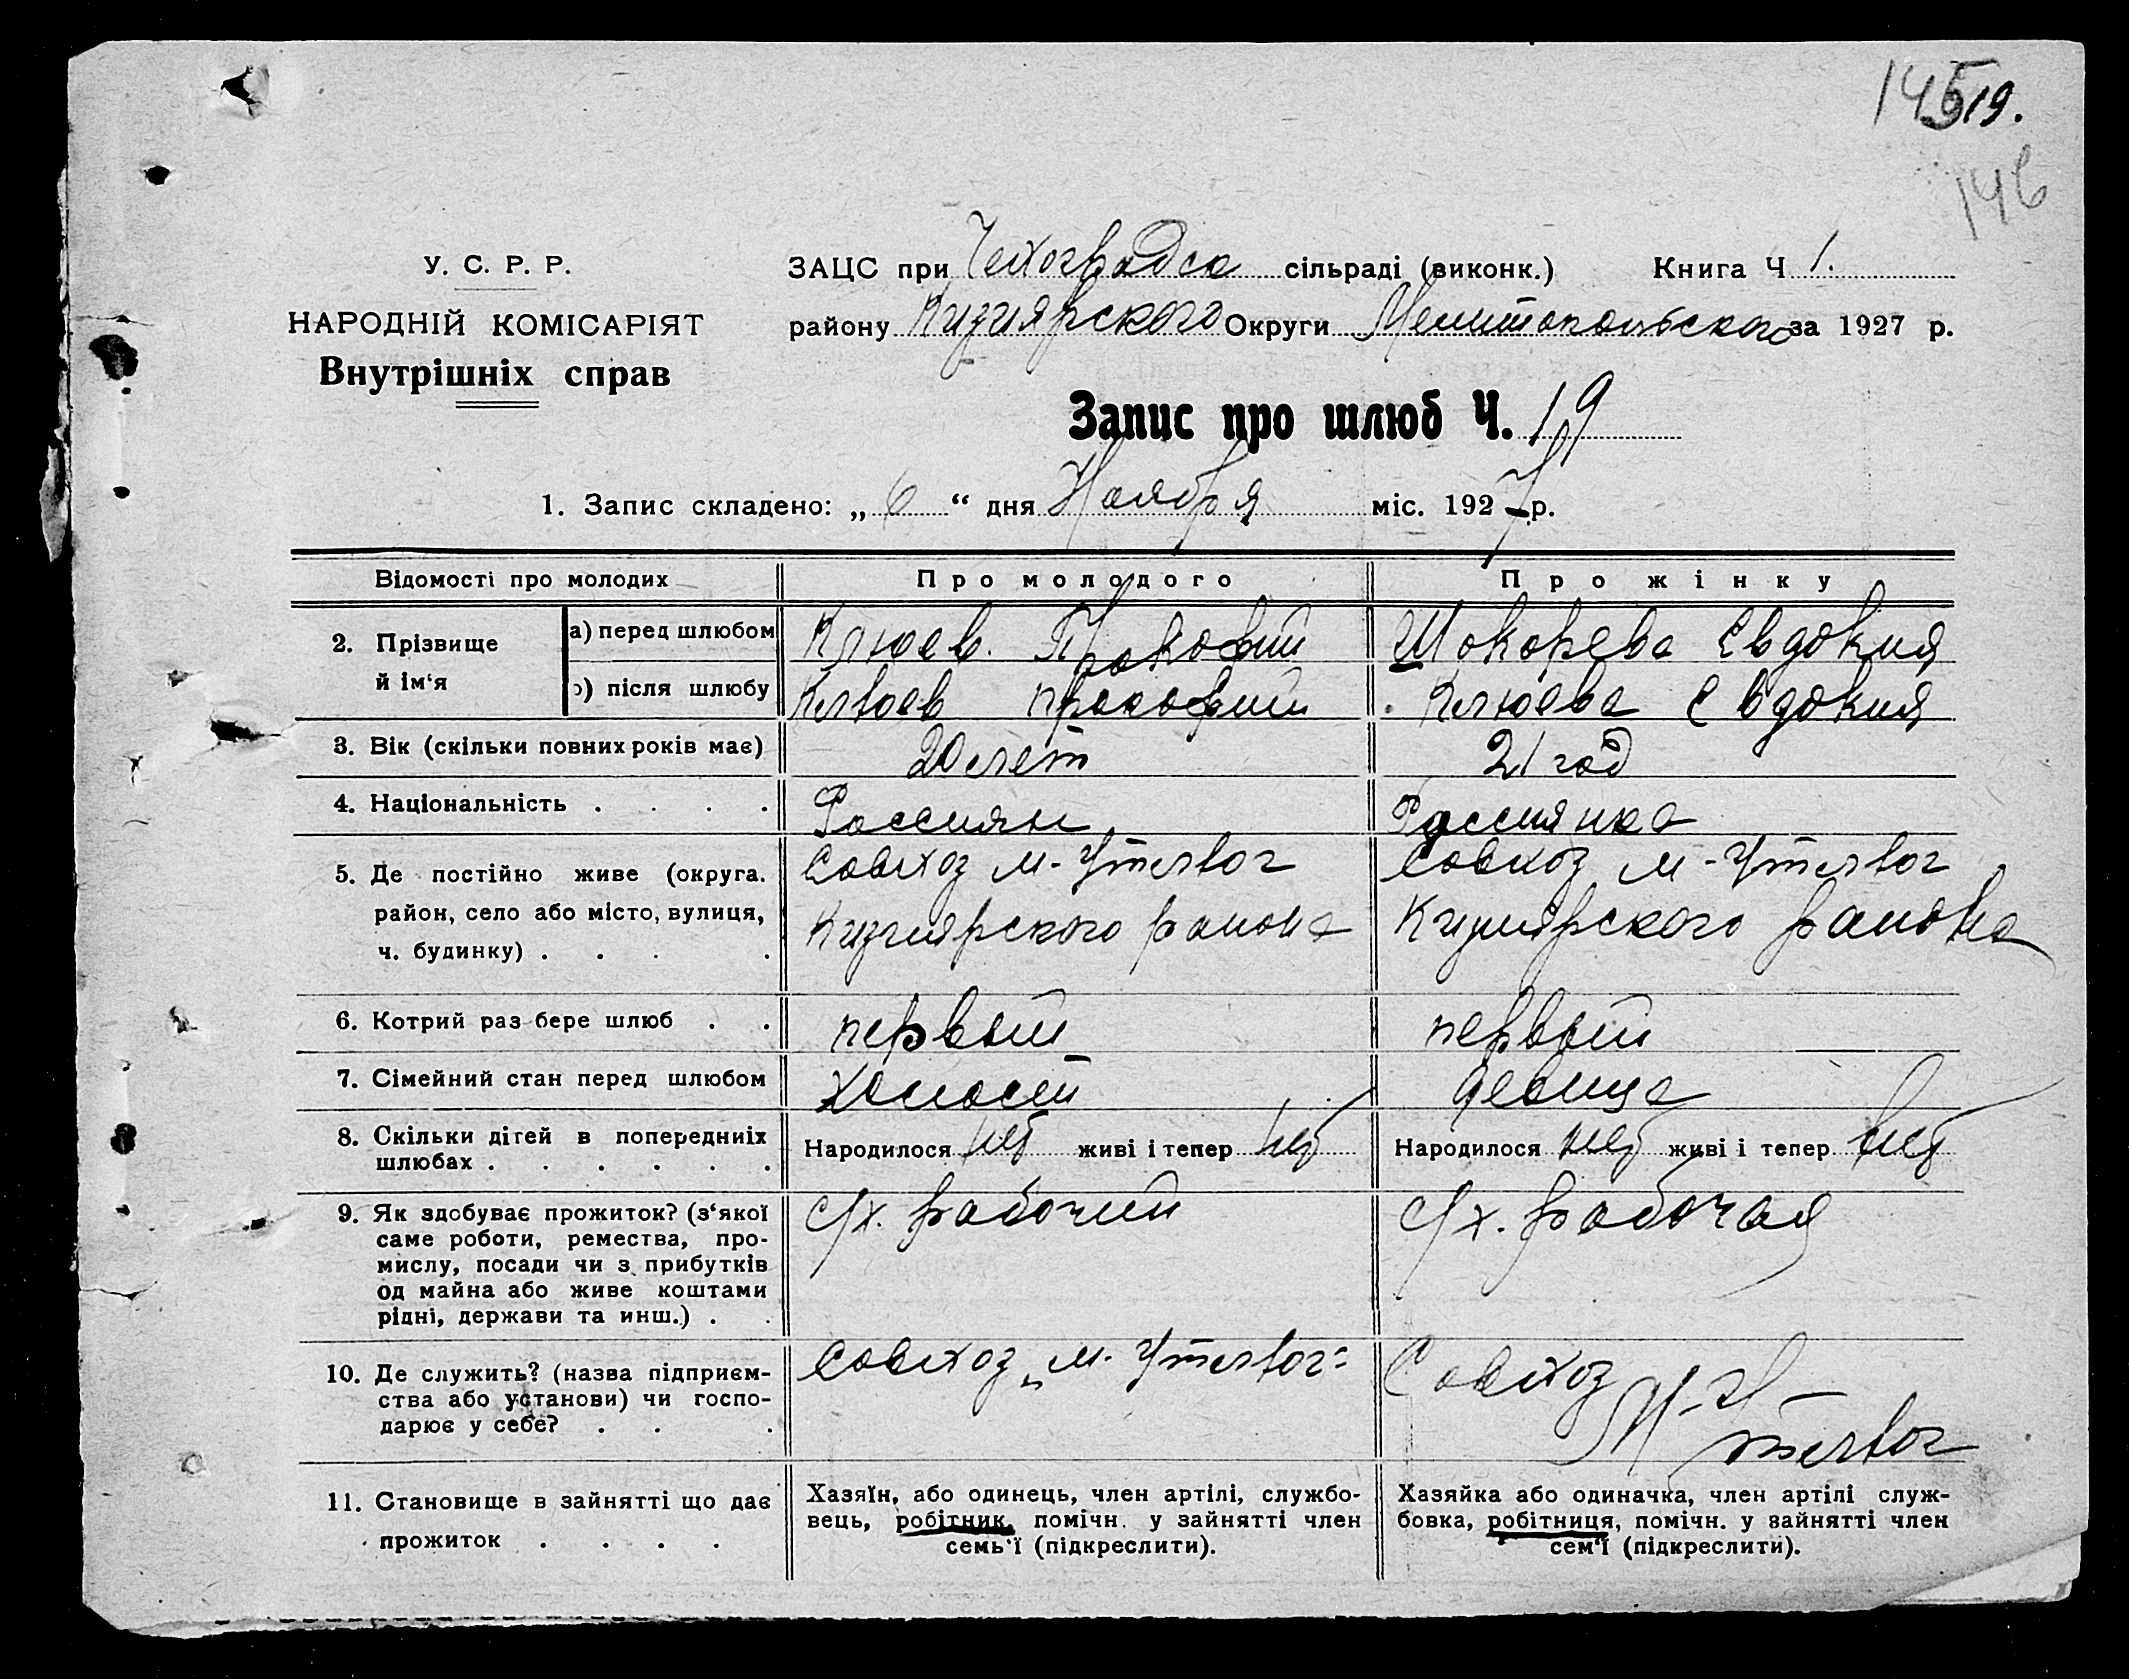 145 19.
146
У. С. Р. Р.
НАРОДНІЙ КОМІСАРІЯТ
Внутрішніх справ
ЗАЦС при Чехоградса сільраді (виконк.) Книга Ч 1.
району Кизиярского Округи Мелитопольского за 1927 р.
Запис про шлюб Ч. 19
1. Запис складено: „ 6 “ дня Ноября міс. 1927 р.
Відомості про молодих
Про молодого
Про жінку
2. Прізвище й ім‘я
а) перед шлюбом
Клюев. Прокофий
Шокорева Евдокия
б) після шлюбу
Клюев Прокофий
Клюева Евдокия
3. Вік (скільки повних років має)
20 лет
21 год
4. Національність . . . .
Россиян
Россиянка
5. Де постійно живе (округа.
район, село або місто, вулиця,
ч. будинку) . . . .
Совхоз М-Утлюг
Кизиярского района
Совхоз М-Утлюг
Кизиярского района
6. Котрий раз бере шлюб . .
первый
первый
7. Сімейний стан перед шлюбом
холостй
девица
8. Скільки дітей в попередниіх
шлюбах . . . . . .
Народилося нет живі і тепер нет
Народилося нет живі і тепер нет
9. Як здобуває прожиток? (з‘якої
саме роботи, ремества, про-
мислу, посади чи з прибутків
од майна або живе коштами
рідні, держави та инш.) . .
с/х. рабочий
с/х. рабочая
10. Де служить? (назва підприєм-
ства або установи) чи госпо-
дарює у себе? . . .
Совхоз „М-Утлюг“
Совхоз
М-У
тлюг
11. Становище в зайнятті що дає
прожиток . . . .
Хазяїн, або одинець, член артілі, службо-
вець, робітник, помічн. у зайнятті член
семь'ї (підкреслити).
Хазяйка або одиначка, член артілі служ-
бовка, робітниця, помічн. у зайнятті член
сем'ї (підкреслити).